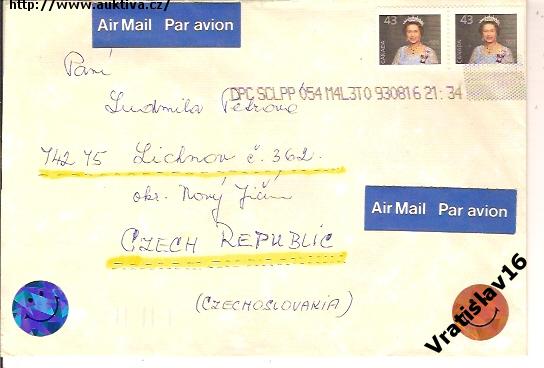 http://www.auktiva.cz/
Air Mail Par avion
43 CANADA
43 CANADA
Paní
Ludmila Petrová
DPC SCLPP 054 M4L3T0 930816 21:34
742 75 Lichnov č. 362.
okr. Nový Jičín
CZECH REPUBLIC
Air Mail Par avion
(CZECHOSLOVAKIA)
Vratislav16